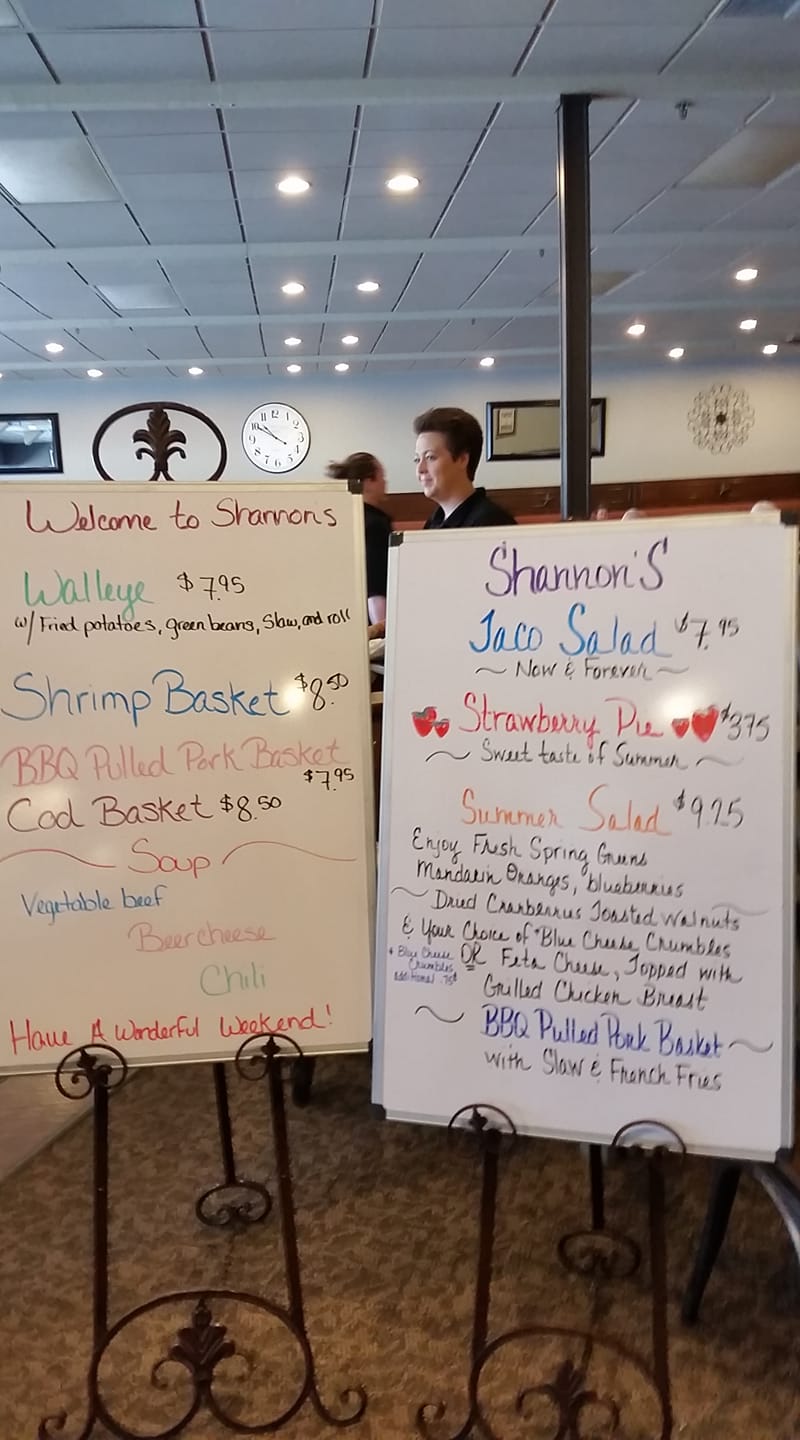 Welcome to Shannons
Walleye $7.95
w/ Fried potatoes, green beans, Slaw, and roll
Shrimp Basket $8.50
BBQ Pulled Pork Basket
$7.95
Cod Basket $8.50
Soup
Vegetable beef
Beer cheese
Chili
Have A Wonderful Weekend!
Shannon'S
Taco Salad $7.95
~ Now & Forever ~
Strawberry Pie $3.75
~ Sweet taste of Summer ~
Summer Salad $9.25
Enjoy Fresh Spring Greens
Mandarin Oranges, blueberries
~ Dried Cranberries Toasted Walnuts
& Your Choice of *Blue Cheese Crumbles
OR Feta Cheese, Topped with
Grilled Chicken Breast
* Blue Cheese
Crumbles
additional .75¢
~ BBQ Pulled Pork Basket ~
with Slaw & French Fries